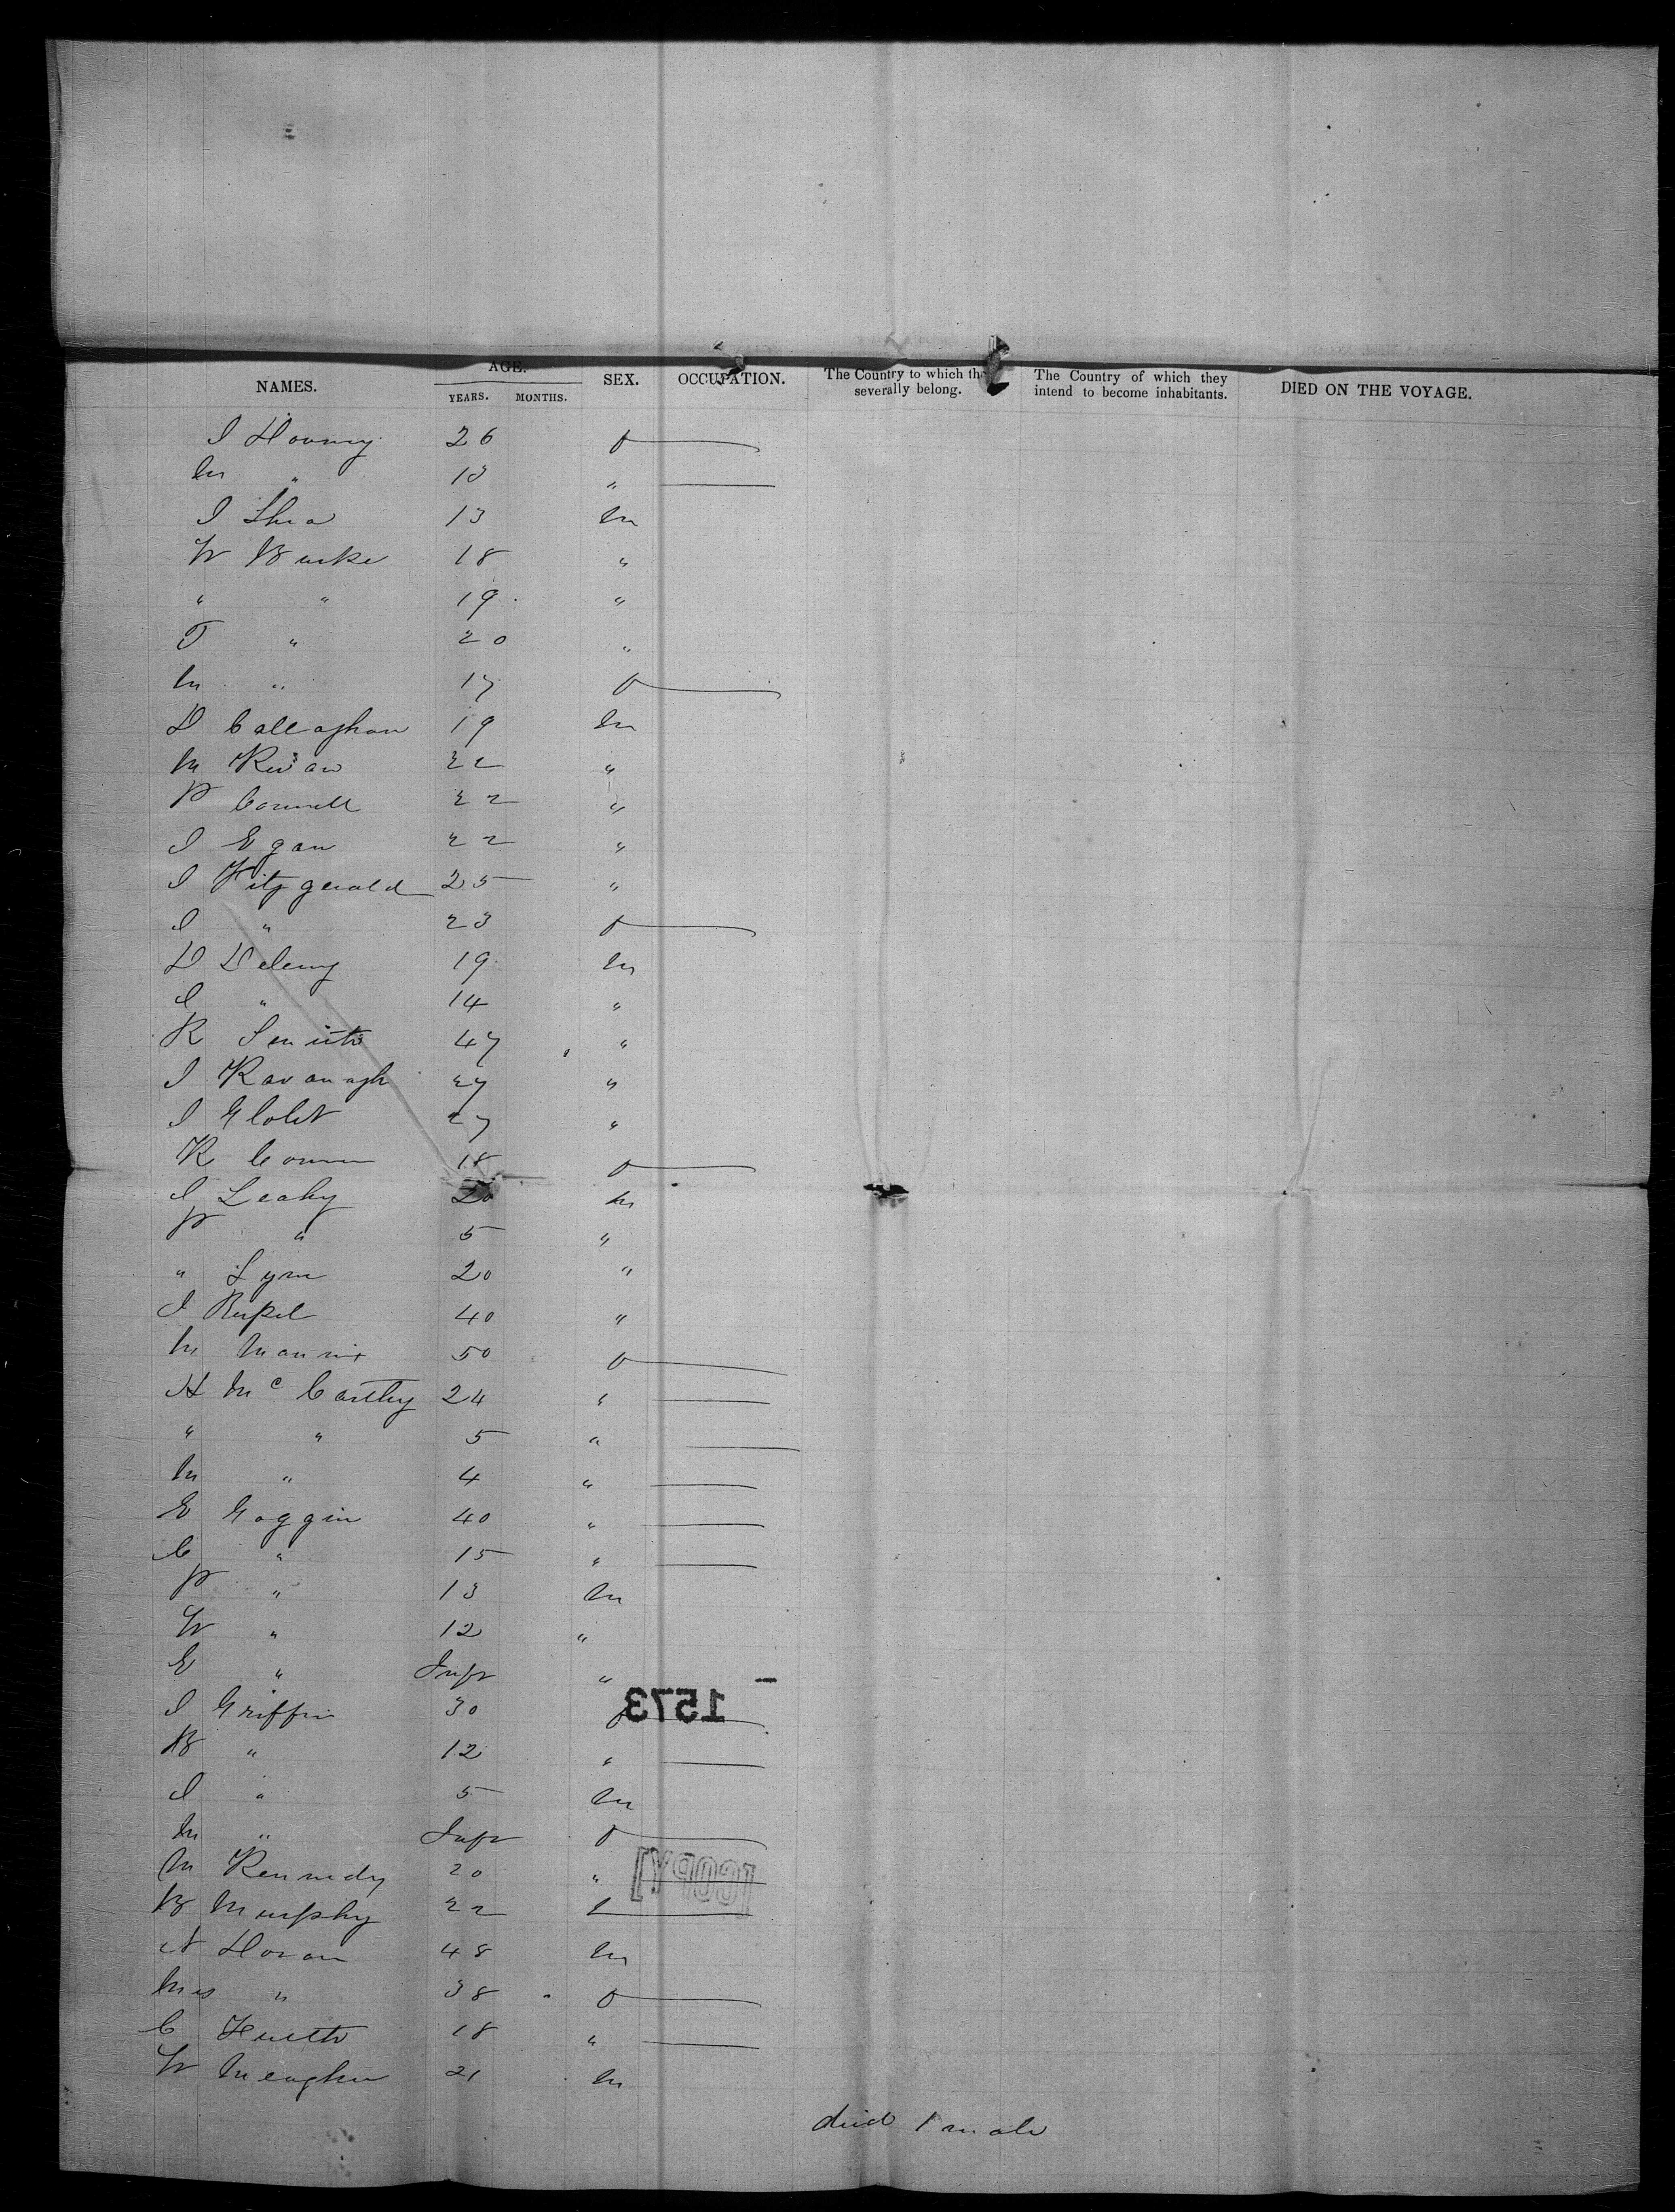 NAMES. AGE. YEARS. MONTHS. SEX. OCCUPATION. The Country to which they severally belong. The Country of which they intend to become inhabitants. DIED ON THE VOYAGE.
J 26 f
M " 13 "
J Shea 13 M
W Burke 18 "
" " 19 "
T " 20 "
M " 17 f
D Callaghan 19 M
M 22 "
P Connell 22 "
J Egan 22 "
J Fitzgerald 25 "
J " 23 f
D Deleny 19 M
J " 14 "
R Smith 47 "
J Kavanagh 27 "
J 27 "
K 18 f
J Leahy 20 M
P " 5 "
" Lynn 20 "
J Russel 40 "
M Mannix 50 f
H McCarthy 24 "
" " 5 "
M " 4 "
E Goggin 40 "
C " 15 "
P " 13 M
W " 12 "
E " Inft "
J Griffin 30 f
B " 12 "
J " 5 M
M " Inft f
M Kennedy 20 "
B Murphy 22
N Horan 48 M
Mrs " 38 f
C 18 "
W Meagher 21 M
died 1 male
1573
[COPY]